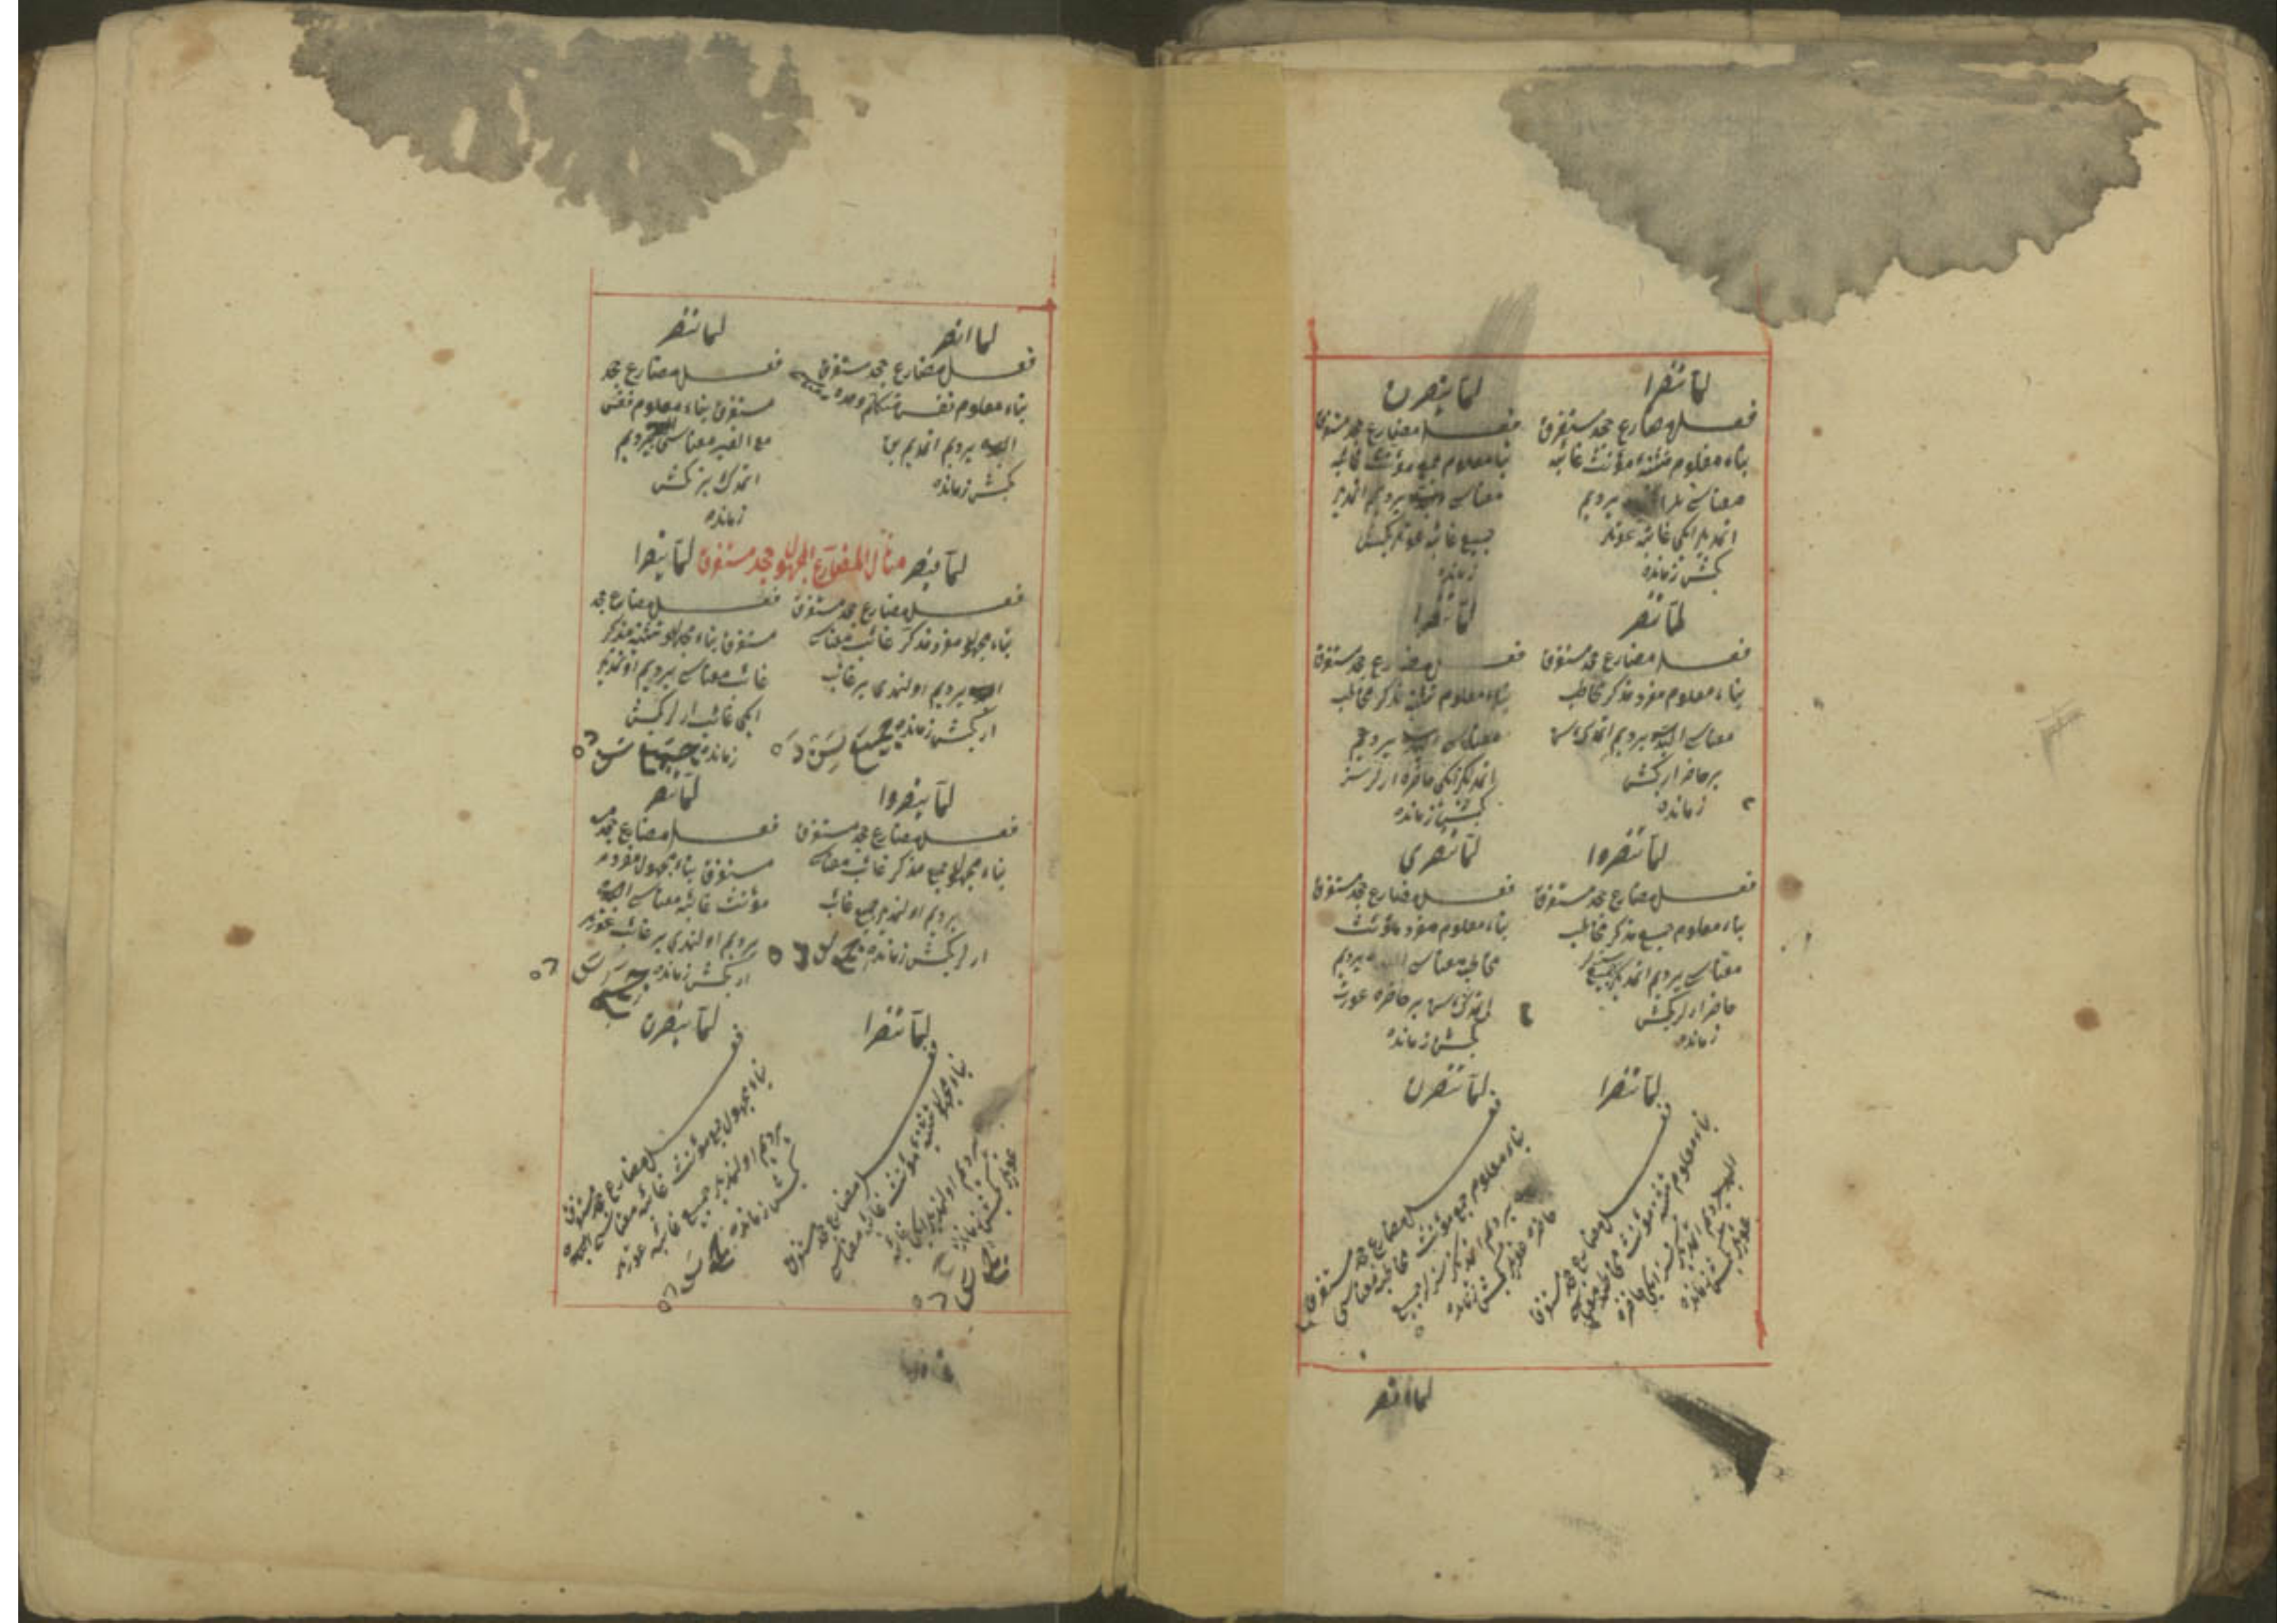 لمّا تنصرا
فعل مضارع جحد مستغرق
بناء معلوم تثنيه مؤنث غائبه
معناسى يردم
اتمديلر ايكى غائبه عورتلر
كچمش زمانده
لمّا ينصرن
فعل مضارع جحد مستغرق
بناء معلوم جمع مؤنث غائبه
معناسى يردم اتمديلر
جميع غائبه عورتلر كچمش
زمانده
لمّا تنصر
فعل مضارع جحد مستغرق
بناء معلوم مفرد مذكر مخاطب
معناسى البته يردم اتمدك سن
بر حاضر ار كچمش
زمانده
لمّا تنصرا
فعل مضارع جحد مستغرق
بناء معلوم تثنيه مذكر مخاطب
معناسى يردم
اتمديكز ايكى حاضر ارلر سز
كچمش زمانده
لمّا تنصروا
فعل مضارع جحد مستغرق
بناء معلوم جمع مذكر مخاطب
معناسى يردم اتمديكز جميع
حاضر ارلر كچمش
زمانده
لمّا تنصرى
فعل مضارع جحد مستغرق
بناء معلوم مفرد مؤنث
مخاطبه معناسى يردم
اتمدك سن بر حاضره عورت
كچمش زمانده
لمّا تنصرا
فعل مضارع جحد مستغرق
بناء معلوم تثنيه مؤنث مخاطبه معناسى
البته يردم اتمديكز سز ايكى حاضره
عورتلر كچمش زمانده
لمّا تنصرن
فعل مضارع جحد مستغرق
بناء معلوم جمع مؤنث مخاطبه معناسى
يردم اتمديكز سزلر جميع
حاضره عورتلر كچمش زمانده
لما انصر
لما انصر
فعل مضارع جحد مستغرق
بناء معلوم نفس متكلم وحده معناسى
البته يردم اتمديم بن
كچمش زمانده
لما ننصر
فعل مضارع جحد
مستغرق بناء معلوم نفس
مع الغير معناسى يردم
اتمدك بز كچمش
زمانده
لمّا ينصر مثال المضارع المجهول جحد مستغرق لمّا ينصرا
فعل مضارع جحد مستغرق
بناء مجهول مفرد مذكر غائب معناسى
البته يردم اولنمدى بر غائب
ار كچمش زمانده
فعل مضارع جحد
مستغرق بناء مجهول تثنيه مذكر
غائب معناسى يردم اولنمديلر
ايكى غائب ارلر كچمش
زمانده
لمّا ينصروا
فعل مضارع جحد مستغرق
بناء مجهول جمع مذكر غائب معناسى
يردم اولنمديلر جميع غائب
ارلر كچمش زمانده
لمّا تنصر
فعل مضارع جحد
مستغرق بناء مجهول مفرد
مؤنث غائبه معناسى البته
يردم اولنمدى بر غائبه عورت
كچمش زمانده
لمّا تنصرا
فعل مضارع جحد مستغرق
بناء مجهول تثنيه مؤنث غائبه معناسى
يردم اولنمديلر ايكى غائبه
عورتلر كچمش زمانده
لمّا ينصرن
فعل مضارع جحد مستغرق
بناء مجهول جمع مؤنث غائبه معناسى البته
يردم اولنمديلر جميع غائبه عورتلر
كچمش زمانده